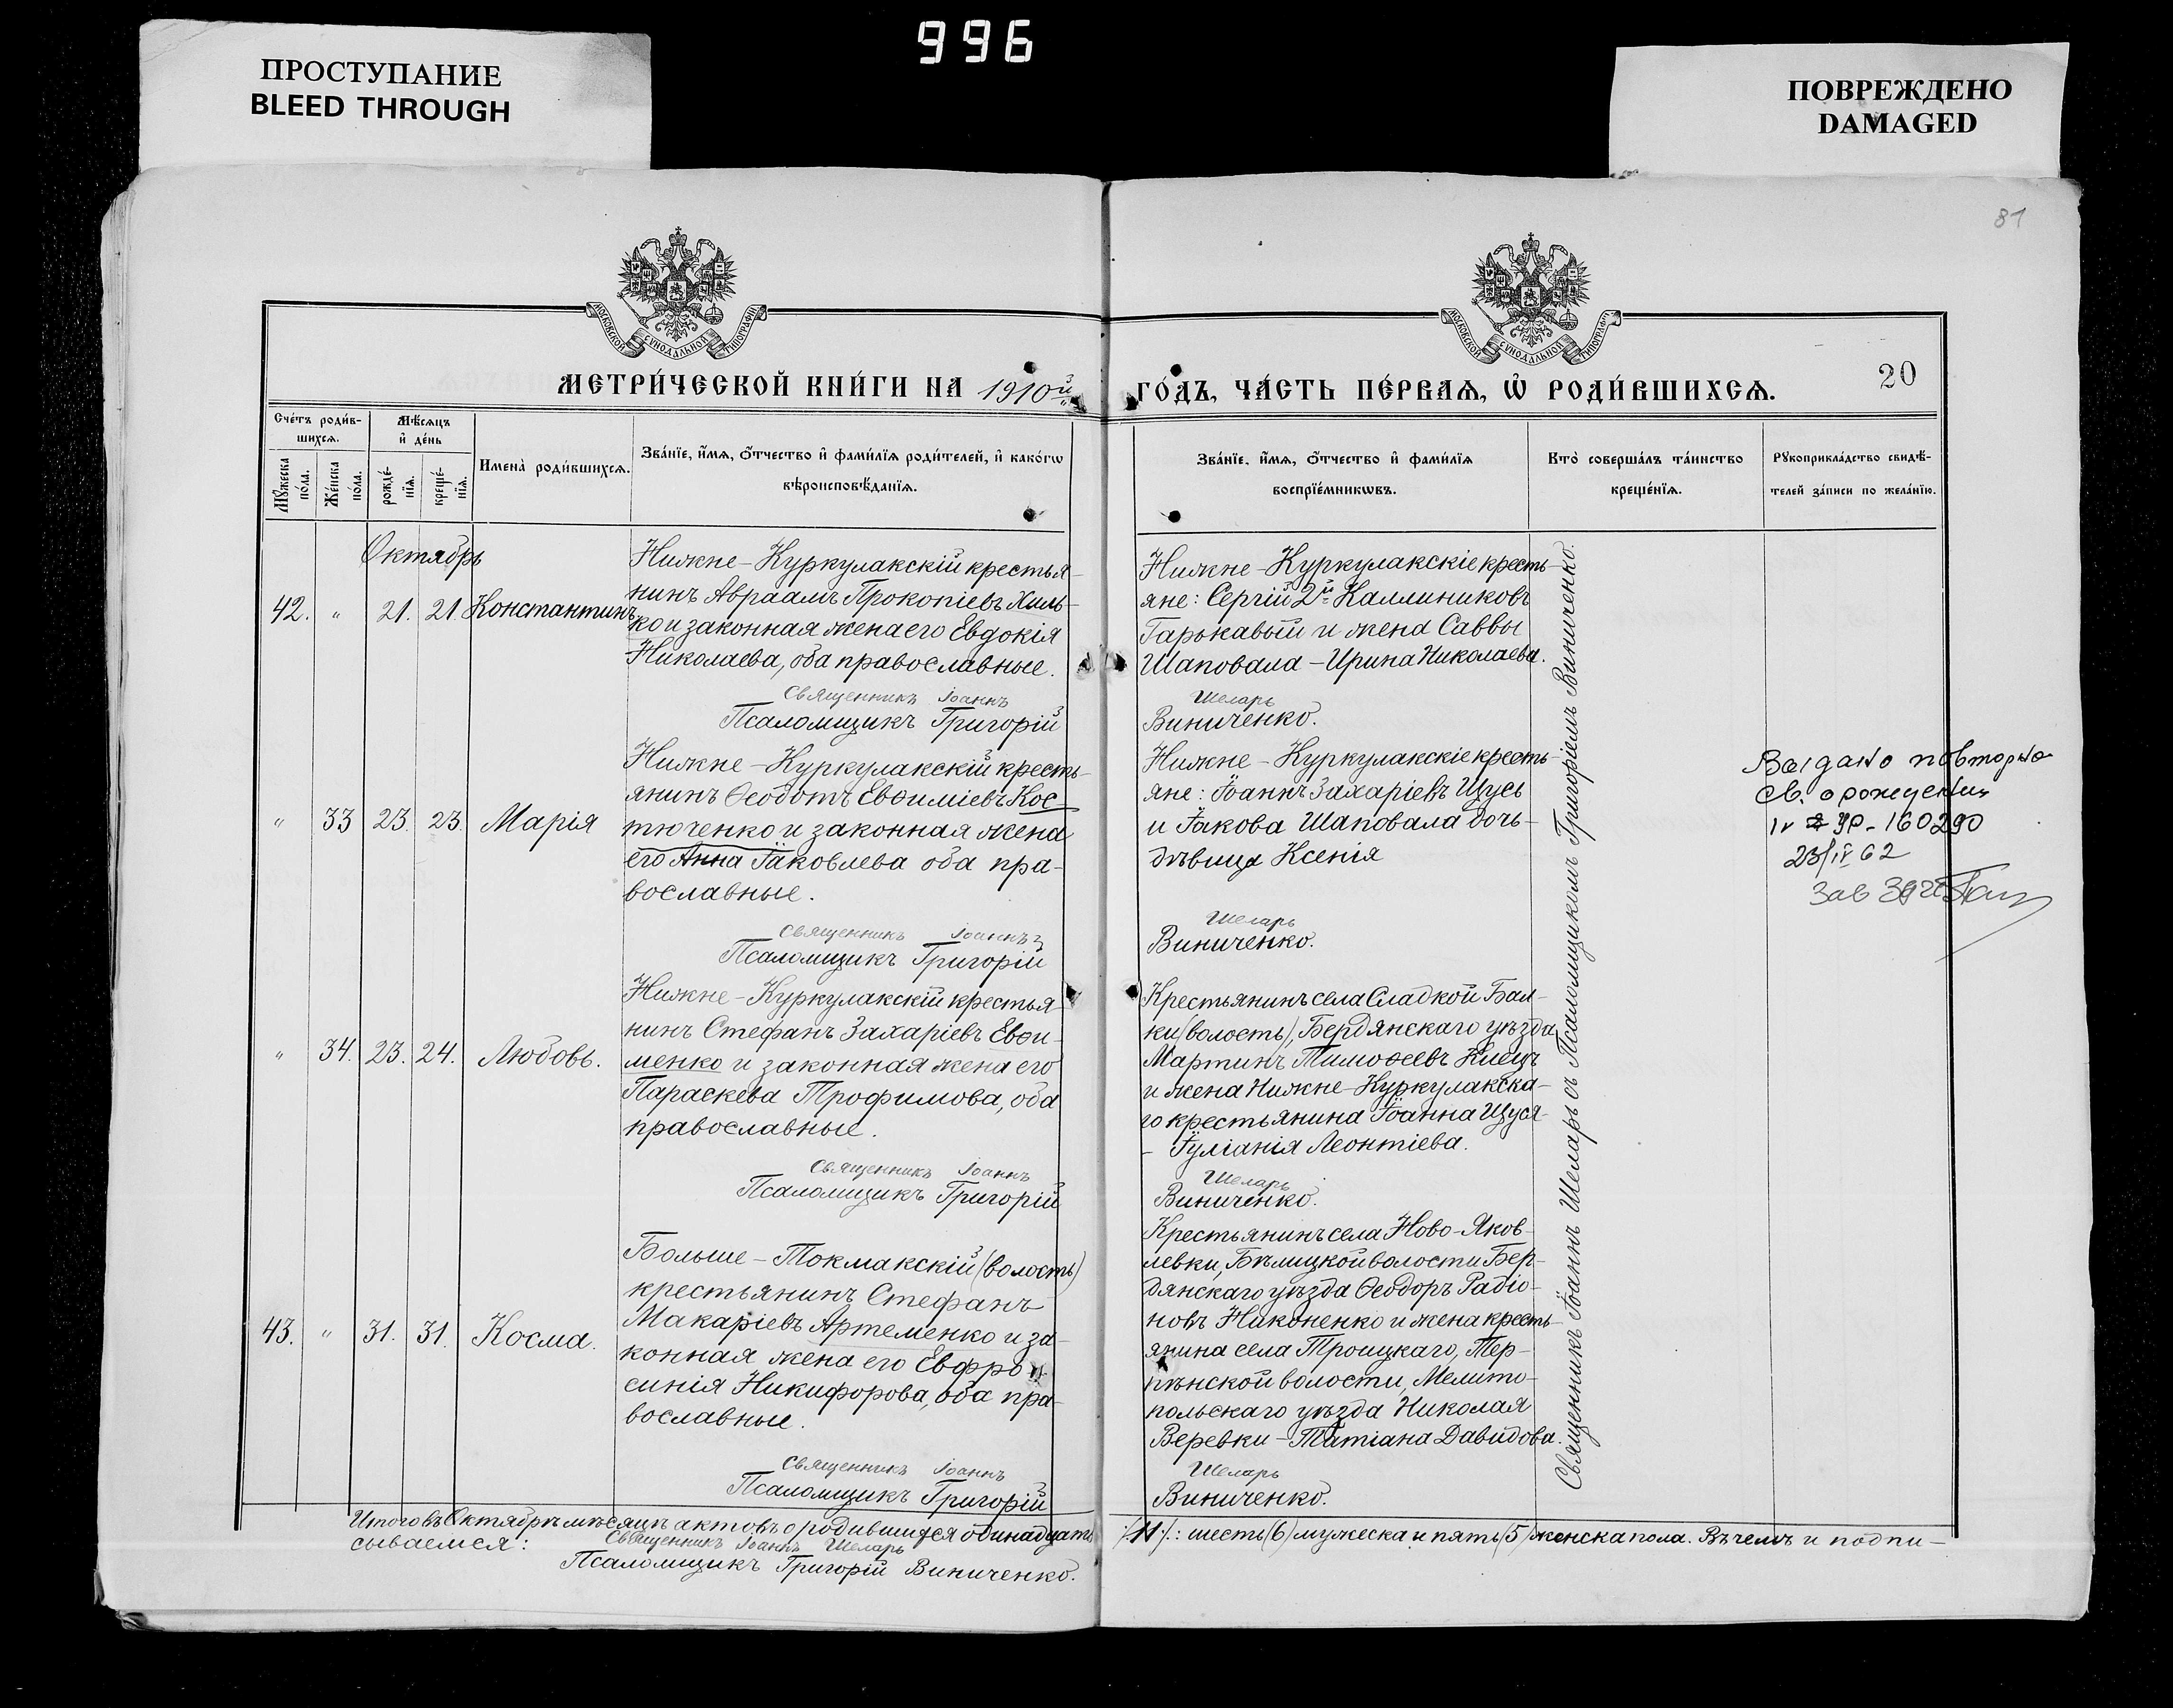 996
ПРОСТУПАНИЕ
BLEED THROUGH
ПОВРЕЖДЕНО
DAMAGED
81
МОСКОВСКОЙ СУНОДАЛЬНОЙ ТИПОГРАФІИ
МОСКОВСКОЙ СУНОДАЛЬНОЙ ТИПОГРАФІИ
МЕТРИ́ЧЕСКОЙ КНИ́ГИ НА 1910й
ГО́ДЪ, ЧА́СТЬ ПЕ́РВАѦ, Ѡ҆ РОДИ́ВШИХСѦ.
20
Сче́тъ роди́в-
шихсѧ.
Мꙋ́жеска по́ла.
Же́нска по́ла.
Мѣ́сяцъ
и҆ де́нь
рожде́-
нїѧ.
креще́-
нїѧ.
Имена̀ роди́вшихсѧ.
Зва́нїе, и҆́мѧ, ѻ҆́тчество и҆ фами́лїѧ роди́телей, и҆ како́гѡ
вѣроисповѣ́данїѧ.
Зва́нїе, и҆́мѧ, ѻ҆́тчество и҆ фами́лїѧ
воспрїе́мникѡвъ.
Кто̀ соверша́лъ та́инство
креще́нїѧ.
Рꙋкоприкла́дство свидѣ́-
телей за́писи по жела́нїю.
Октябрь
42. " 21. 21. Константинъ
Нижне-Куркулакскій крестья-
нинъ Авраамъ Прокопіевъ Хиль-
ко и законная жена его Евдокія
Николаева, оба православные.
Священникъ Іоаннъ
Псаломщикъ Григорій
Нижне-Куркулакскіе кресть-
яне: Сергій 2й Каллиниковъ
Гарькавый и жена Саввы
Шаповала - Ирина Николаева.
Шеларь
Виниченко.
" 33 23. 23. Марія
Нижне-Куркулакскій кресть-
янинъ Ѳеодотъ Евѳиміевъ Кос-
тюченко и законная жена
его Анна Іаковлева оба пра-
вославные.
Священникъ Іоаннъ
Псаломщикъ Григорій
Нижне-Куркулакскіе кресть-
яне: Іоаннъ Захаріевъ Щусь
и Іакова Шаповала дочь-
дѣвица Ксенія
Шеларь
Виниченко.
Выдано повторно
св. о рождении
23/IV 62
" 34. 23. 24. Любовь.
Нижне-Куркулакскій крестья-
нинъ Стефанъ Захаріевъ Евѳи-
менко и законная жена его
Параскева Трофимова, оба
православные.
Священникъ Іоаннъ
Псаломщикъ Григорій
Крестьянинъ села Сладкой Бал-
ки (волость), Бердянскаго уѣзда
Мартинъ Тимоѳеевъ
и жена Нижне-Куркулакска-
го крестьянина Іоанна Щуся-
- Іуліанія Леонтіева.
Шеларь
Виниченко.
43. " 31. 31. Косма.
Больше-Токмакскій (волость)
крестьянинъ Стефанъ
Макаріевъ Артеменко и за-
конная жена его Евфро-
синія Никифорова, оба пра-
вославные.
Священникъ Іоаннъ
Псаломщикъ Григорій
Крестьянинъ села Ново-Яков-
левки, Бѣлицкой волости Бер-
дянскаго уѣзда Ѳеодоръ Радіо-
новъ Никоненко и жена кресть-
янина села Троицкаго, Тер-
пѣнской волости, Мелито-
польскаго уѣзда Николая
Веревки - Татіана Давидова.
Шеларь
Виниченко.
Священникъ Іоаннъ Шеларь съ Псаломщикомъ Григоріемъ Виниченко.
Итого въ Октябрѣ мѣсяцѣ актовъ о родившихся одинадцать /11/.: шесть (6) мужеска и пять (5) женска пола. Въ чемъ и подпи-
сываемся:
Священникъ Іоаннъ Шеларь
Псаломщикъ Григорій Виниченко.